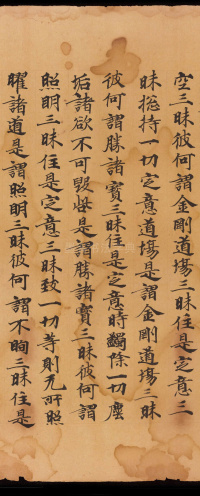 空三昧彼何謂金剛道場三昧住是定意三
昧揔持一切定意道場是謂金剛道場三昧
彼何謂勝諸寶三昧住是定意時蠲除一切塵
垢諸欲不可毀悔是謂勝諸寶三昧彼何謂
照明三昧住是定意三昧致一切等則无所照
曜諸道是謂照明三昧彼何謂不眴三昧住是